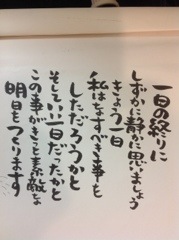 一日の終りに
しずかに静かに思いましょう
きょう一日
私はなすべき事を
しただろうかと
そしていい一日だったかと
この事がきっと素敵な
明日をつくります